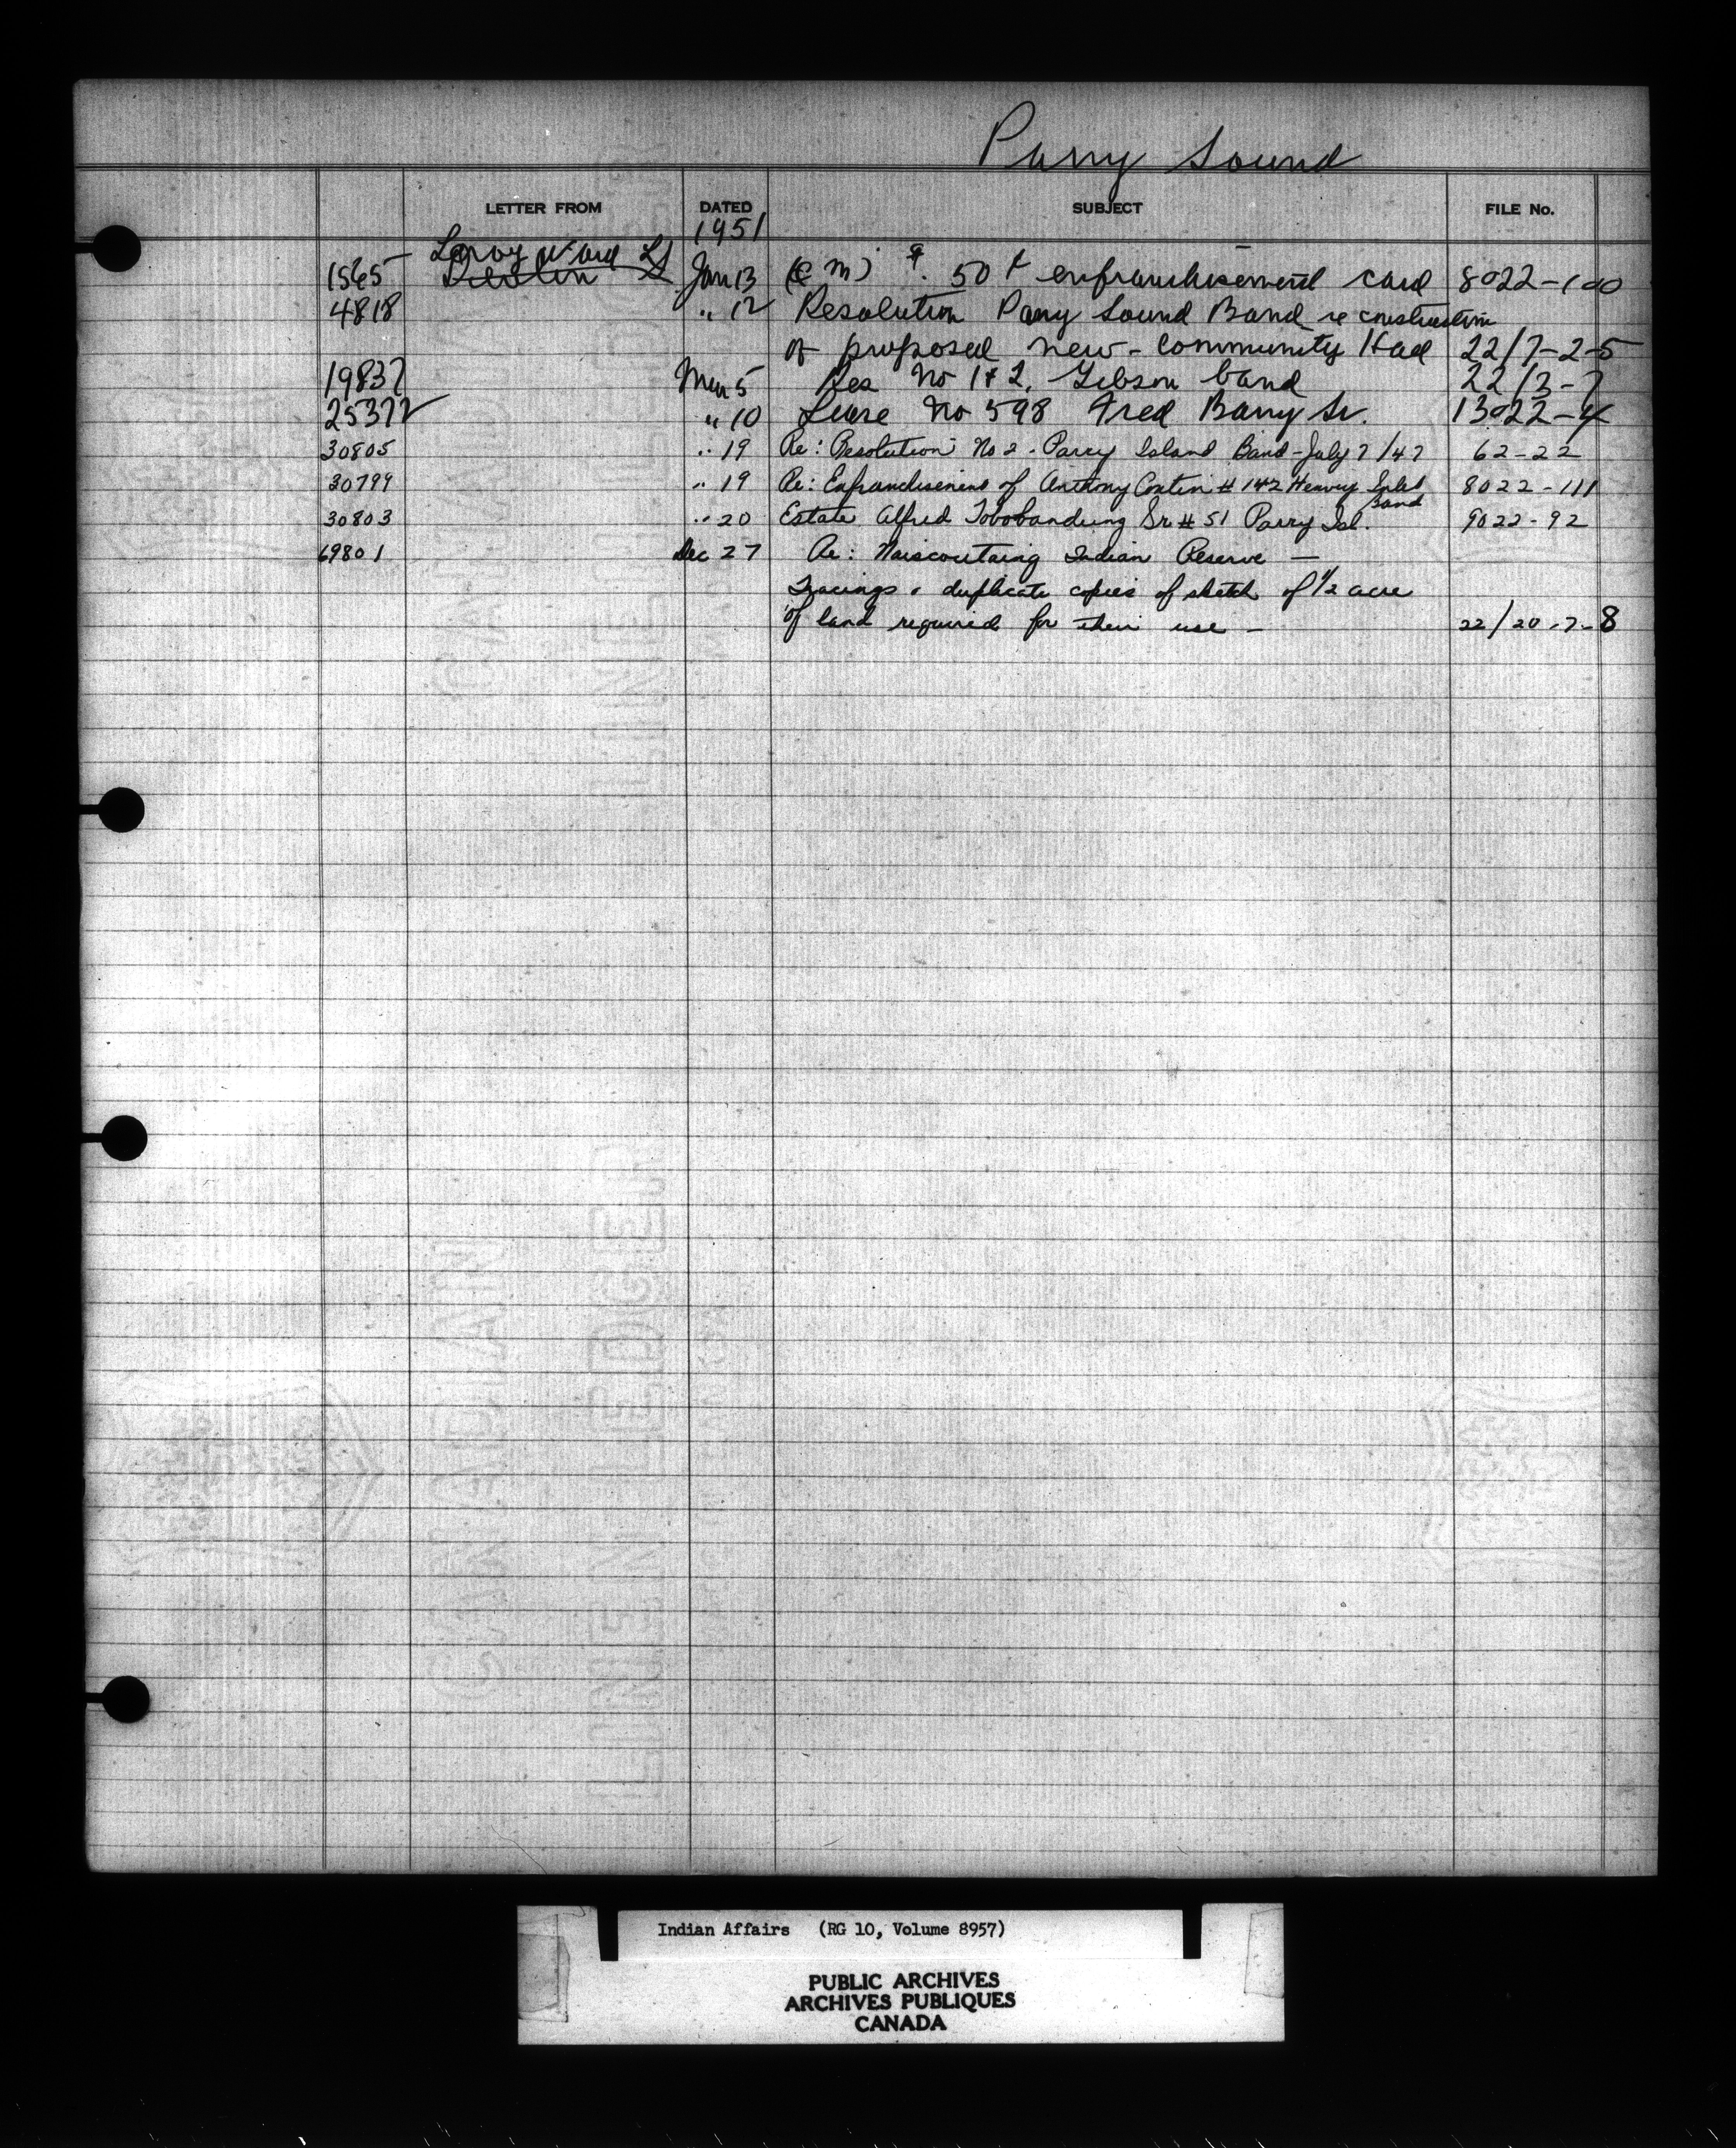 Parry Sound
LETTER FROM DATED SUBJECT FILE No.
1951
Leroy Ward
1565 Devlin Jan 13 50 enfranchisement card 8022-100
4818 " 12 Resolution Parry Sound Band re construction
of proposed new community Hall 22/7-2-5
19837 Mar 5 Res No 1 & 2, Gibson band 22/3-7
25372 " 10 Lease No 598 Fred Barry Sr. 13022-4
30805 " 19 Re: Resolution No 2 - Parry Island Band - July 7/47 62-22
30799 " 19 Re: Enfranchisement of Anthony Contin # 142 Henvey Inlet Band 8022-111
30803 " 20 Estate Alfred Tobobandung Sr # 51 Parry Isl. 9022-92
69801 Dec 27 Re: Naiscoutaing Indian Reserve —
Tracings & duplicate copies of sketch of 1/2 acre
of land required for their use — 22/20-7-8
Indian Affairs (RG 10, Volume 8957)
PUBLIC ARCHIVES
ARCHIVES PUBLIQUES
CANADA